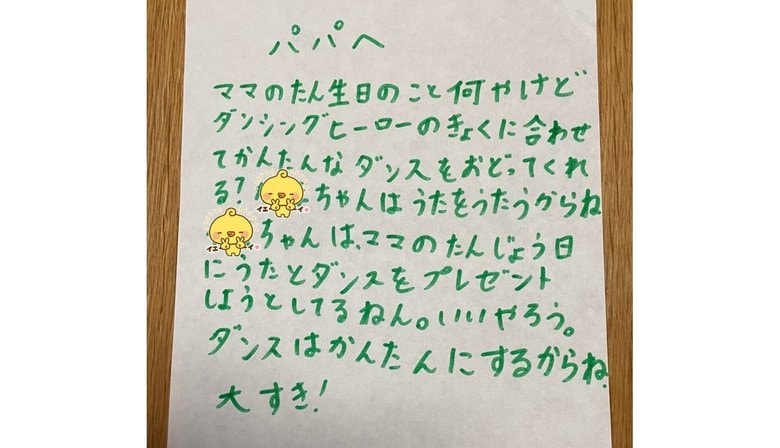 パパへ
ママのたん生日のこと何やけど
ダンシングヒーローのきょくに合わせ
てかんたんなダンスをおどってくれ
る? ちゃんはうたをうたうからね
ちゃんは、ママのたんじょう日
にうたとダンスをプレゼント
しようとしてるねん。いいやろう。
ダンスはかんたんにするからね。
大すき!